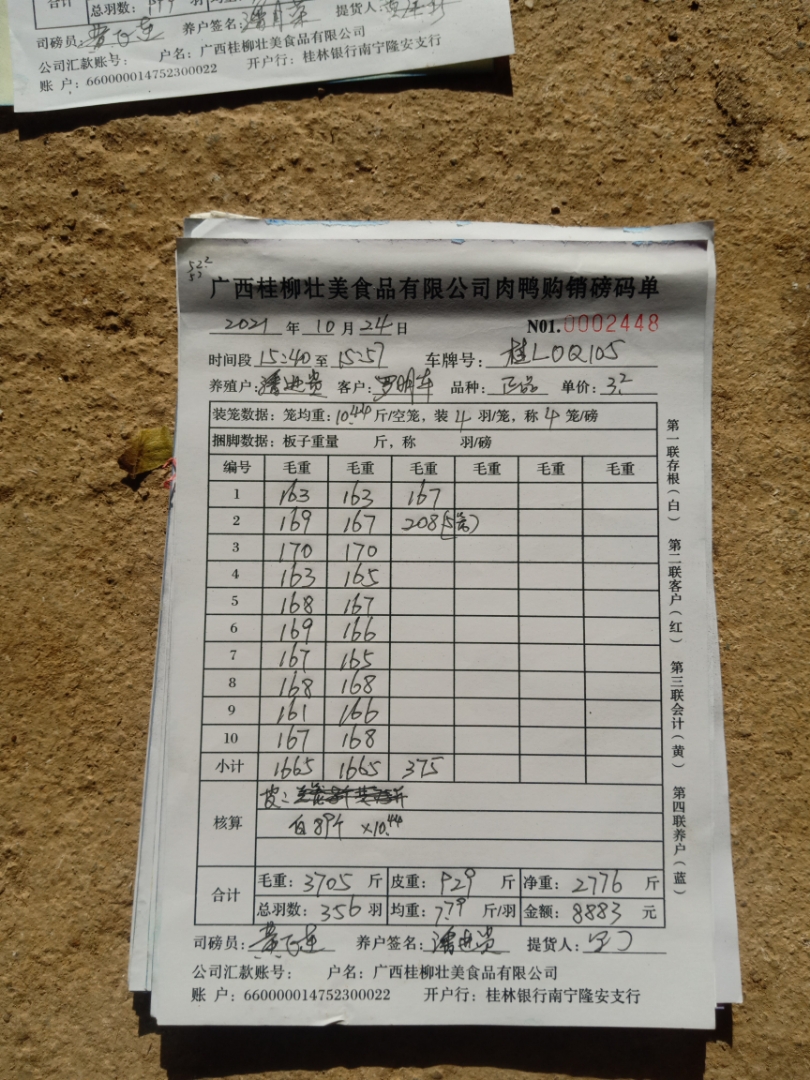 合计 总羽数: 羽
司磅员: 养户签名: 提货人:
公司汇款账号: 户名:广西桂柳壮美食品有限公司
账 户:660000014752300022 开户行:桂林银行南宁隆安支行
广西桂柳壮美食品有限公司肉鸭购销磅码单
2021 年 10 月 24 日 N01.0002448
时间段 15:40 至 15:57 车牌号: 桂L0Q105
养殖户:潘进贵 客户:罗明车 品种:正品 单价:3.2
装笼数据:笼均重:10.44 斤/空笼,装 4 羽/笼,称 4 笼/磅
捆脚数据:板子重量 斤,称 羽/磅
编号 毛重 毛重 毛重 毛重 毛重 毛重
1 163 163 167
2 169 167 208(5笼)
3 170 170
4 163 165
5 168 167
6 169 166
7 167 165
8 168 168
9 161 166
10 167 168
小计 1665 1665 375
核算 皮:
白89个 ×10.44
合计 毛重:3705 斤 皮重:929 斤 净重:2776 斤
总羽数:356 羽 均重:7.79 斤/羽 金额:8883 元
司磅员: 养户签名:潘进贵 提货人:
公司汇款账号: 户名:广西桂柳壮美食品有限公司
账 户:660000014752300022 开户行:桂林银行南宁隆安支行
第一联存根(白) 第二联客户(红) 第三联会计(黄) 第四联养户(蓝)